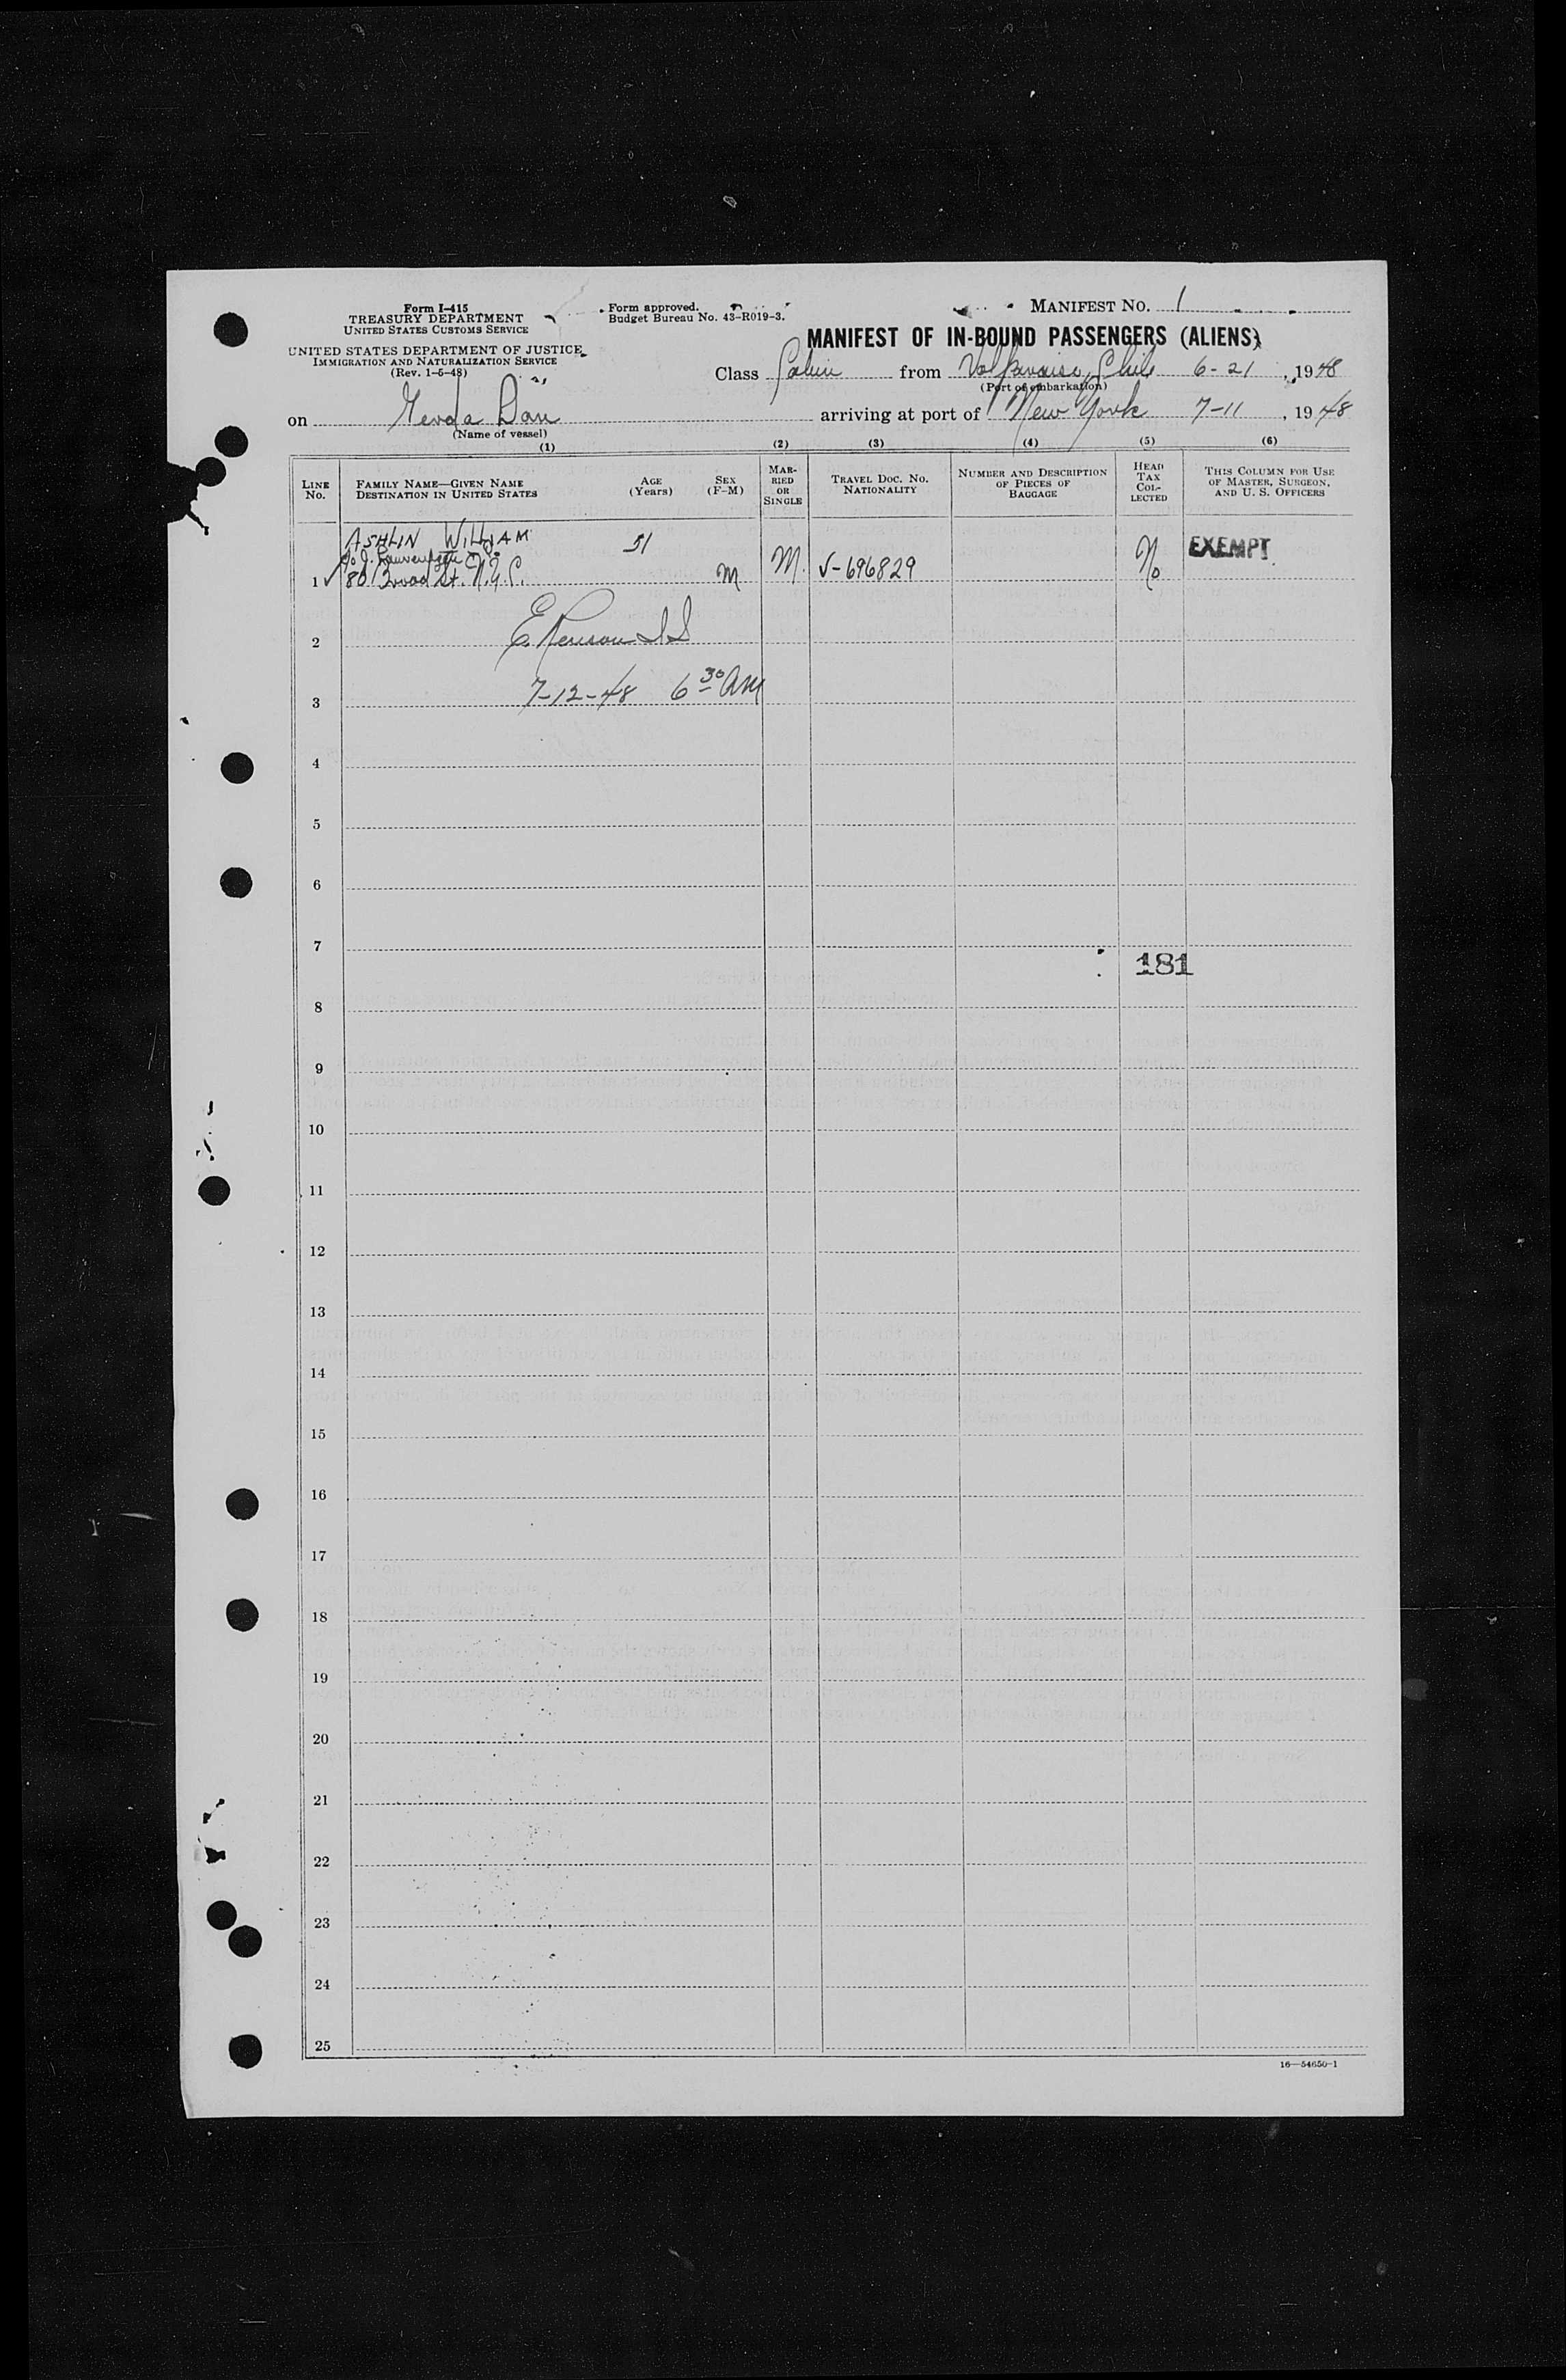 Form I-415
TREASURY DEPARTMENT
UNITED STATES CUSTOMS SERVICE
UNITED STATES DEPARTMENT OF JUSTICE
IMMIGRATION AND NATURALIZATION SERVICE
(Rev. 1-5-48)
Form approved.
Budget Bureau No. 43-R019-3.
MANIFEST NO. 1
MANIFEST OF IN-BOUND PASSENGERS (ALIENS)
Class Cabin from Valparaiso, Chile 6-21, 1948
(Port of embarkation)
on Gerda Dan arriving at port of New York 7-11, 1948
(Name of vessel)
(1) (2) (3) (4) (5) (6)
LINE NO.
FAMILY NAME—GIVEN NAME
DESTINATION IN UNITED STATES
AGE (Years)
SEX (F-M)
MARRIED OR SINGLE
TRAVEL DOC. NO.
NATIONALITY
NUMBER AND DESCRIPTION OF PIECES OF BAGGAGE
HEAD TAX COLLECTED
THIS COLUMN FOR USE OF MASTER, SURGEON, AND U. S. OFFICERS
ASHLIN WILLIAM 51
c/o J.
1 80 Broad St. N.Y.C. M M V-696829 No EXEMPT
2 E
3 7-12-48 6 30 AM
4
5
6
7
181
8
9
10
11
12
13
14
15
16
17
18
19
20
21
22
23
24
25
16—54650-1